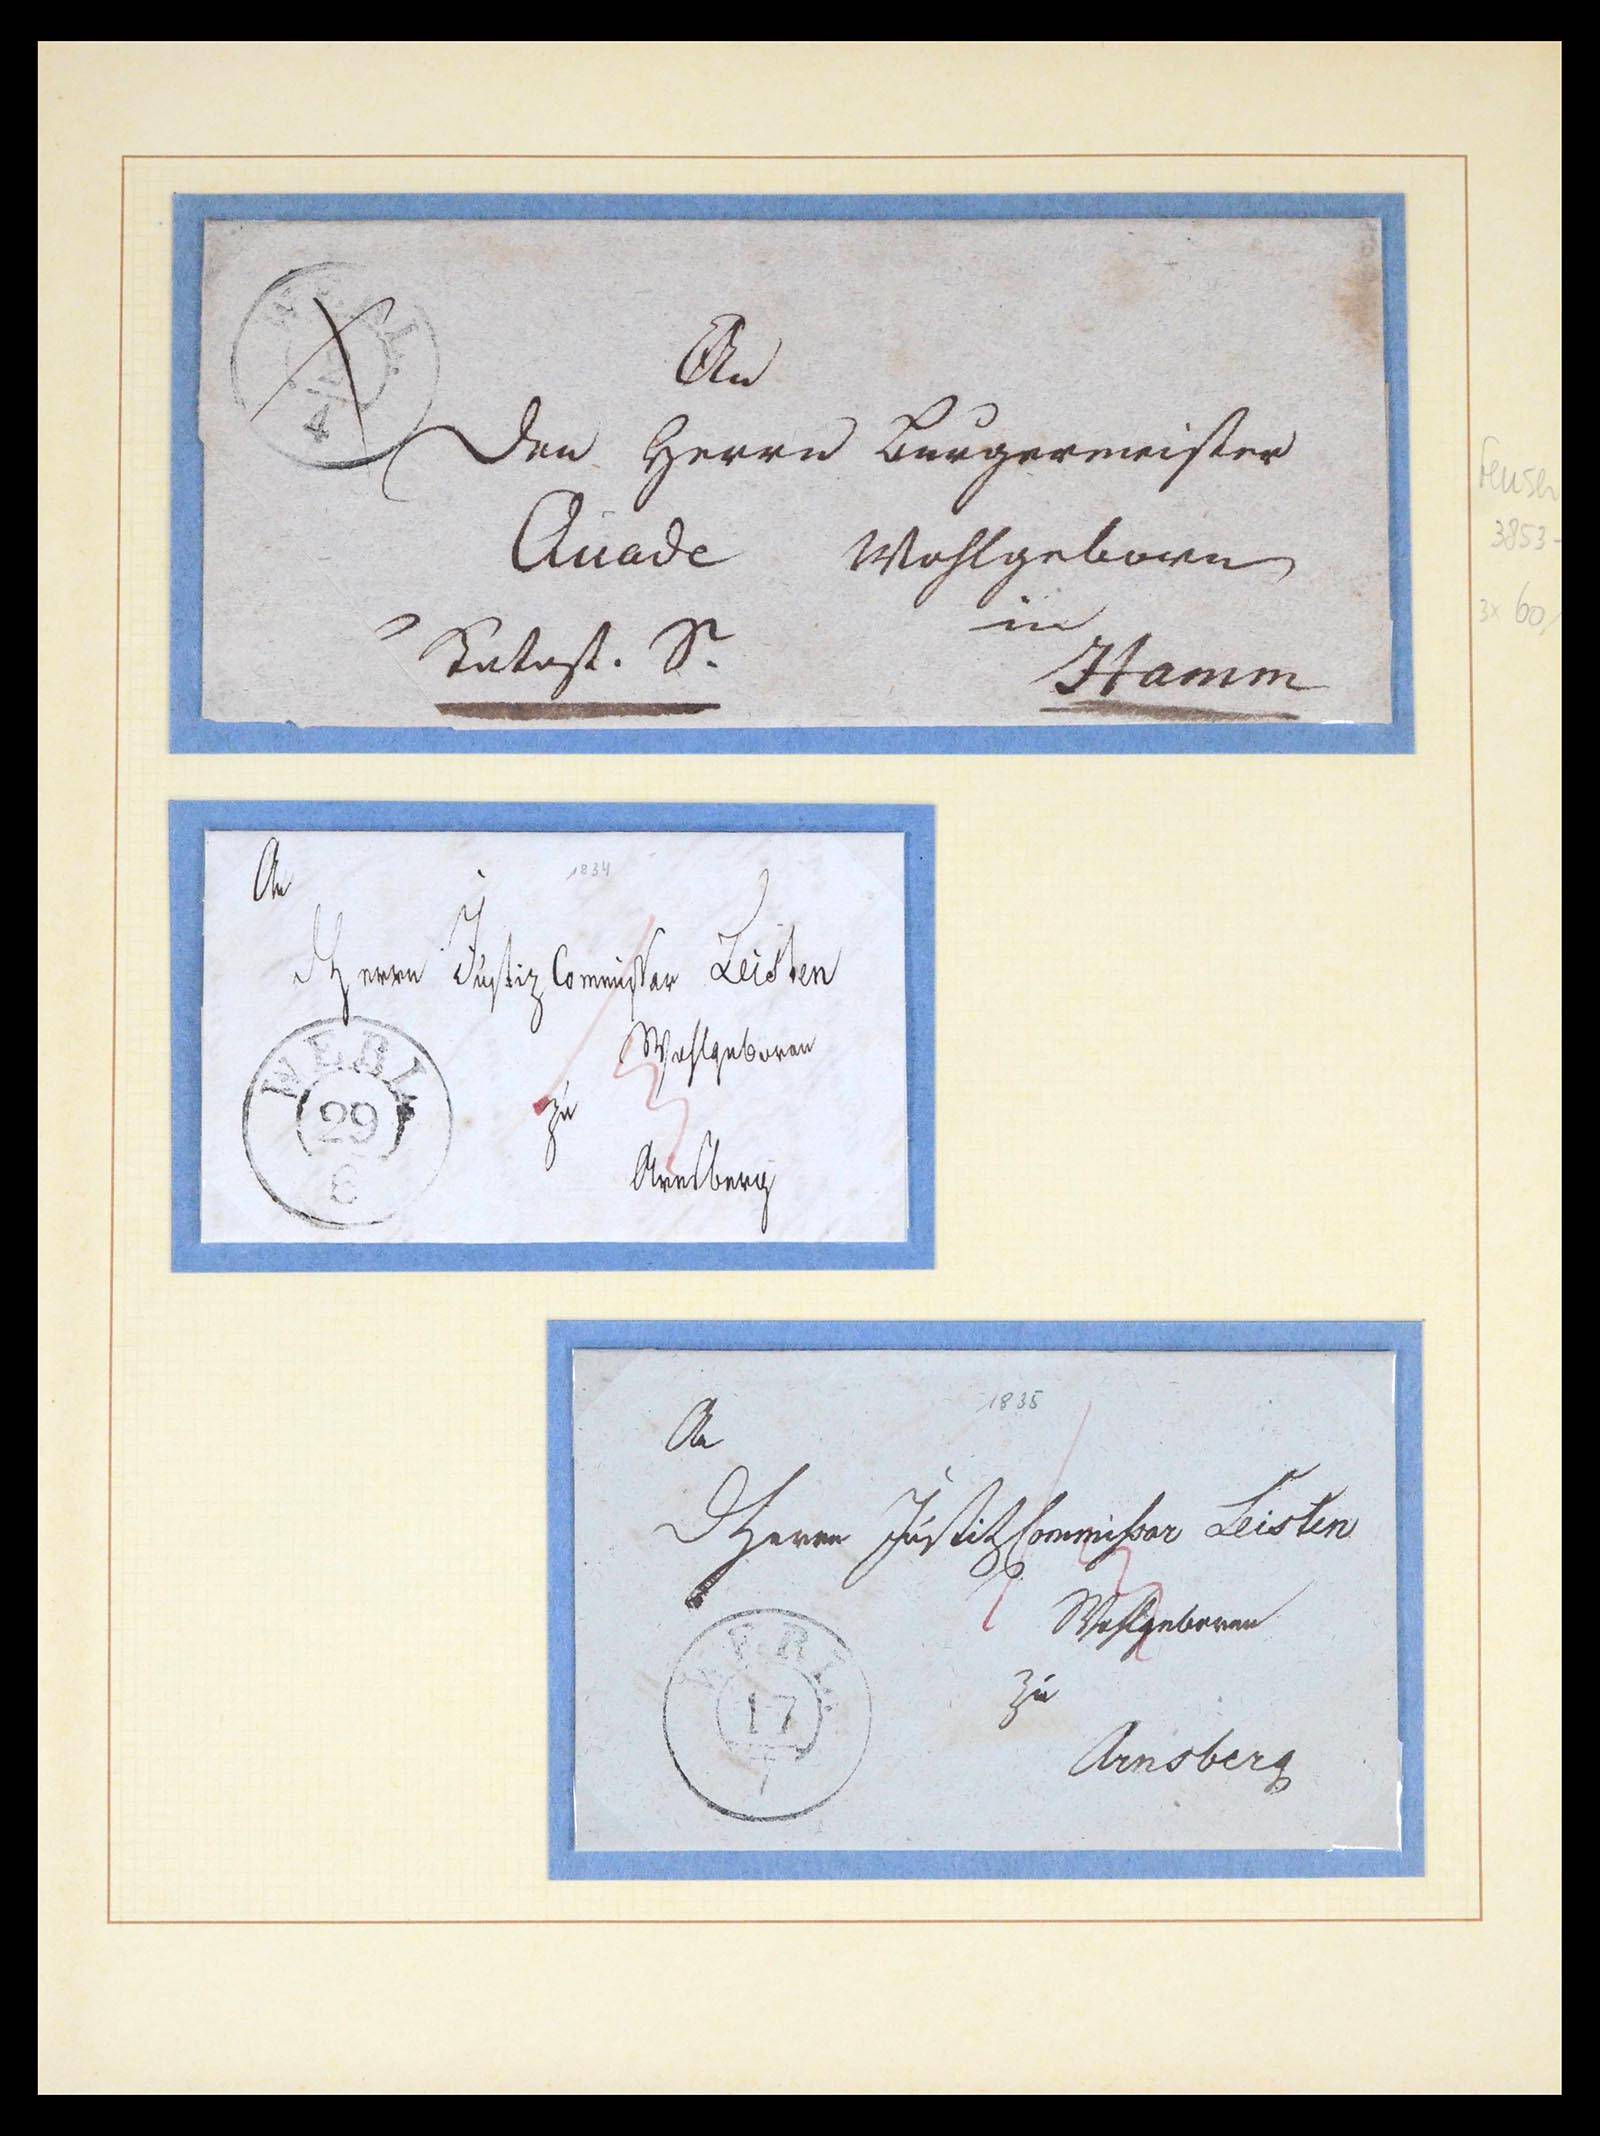 WERL.
4
An
den Herrn Burgermeister
Quade Wohlgeborn
in
Katast. S.
Hamm
Feuser
3853-
3x 60,
1834
An
Herrn Justiz Commissar Leisten
Wohlgeboren
zu
Arnsberg
WERL.
29
8
1835
An
Herrn Justitz Commissar Leisten
Wohlgeboren
zu
Arnsberg
WERL.
17
7